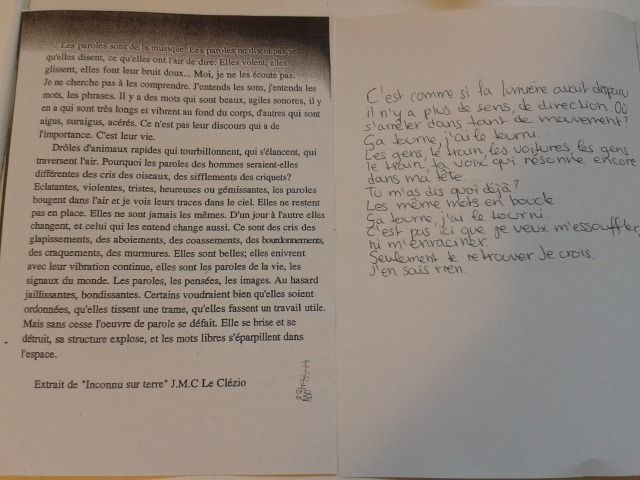 Les paroles sont de la musique. Les paroles ne disent pas ce
qu'elles disent, ce qu'elles ont l'air de dire. Elles volent, elles
glissent, elles font leur bruit doux... Moi, je ne les écoute pas.
Je ne cherche pas à les comprendre. J'entends les sons, j'entends les
mots, les phrases. Il y a des mots qui sont beaux, agiles sonores, il y
en a qui sont très longs et vibrent au fond du corps, d'autres qui sont
aigus, suraigus, acérés. Ce n'est pas leur discours qui a de
l'importance. C'est leur vie.
Drôles d'animaux rapides qui tourbillonnent, qui s'élancent, qui
traversent l'air. Pourquoi les paroles des hommes seraient-elles
différentes des cris des oiseaux, des sifflements des criquets?
Eclatantes, violentes, tristes, heureuses ou gémissantes, les paroles
bougent dans l'air et je vois leurs traces dans le ciel. Elles ne restent
pas en place. Elles ne sont jamais les mêmes. D'un jour à l'autre elles
changent, et celui qui les entend change aussi. Ce sont des cris des
glapissements, des aboiements, des coassements, des bourdonnements,
des craquements, des murmures. Elles sont belles; elles enivrent
avec leur vibration continue, elles sont les paroles de la vie, les
signaux du monde. Les paroles, les pensées, les images. Au hasard
jaillissantes, bondissantes. Certains voudraient bien qu'elles soient
ordonnées, qu'elles tissent une trame, qu'elles fassent un travail utile.
Mais sans cesse l'oeuvre de parole se défait. Elle se brise et se
détruit, sa structure explose, et les mots libres s'éparpillent dans
l'espace.
Extrait de "Inconnu sur terre" J.M.C Le Clézio
C'est comme si la lumière avait disparu
il n'y a plus de sens, de direction. Où
s'arrêter dans tant de mouvement?
Ça tourne, j'ai le tourni...
Les gens, le train, les voitures, les gens
le train, ta voix qui résonne encore
dans ma tête.
Tu m'as dis quoi déjà?
Les même mots en boucle
Ça tourne, j'ai le tourni.
C'est pas ici que je veux m'essouffler,
ni m'enraciner.
Seulement te retrouver. Je crois.
J'en sais rien.